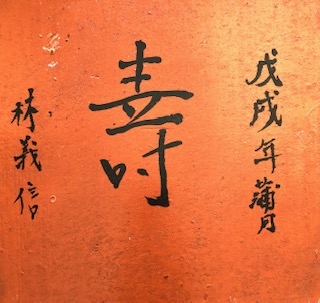 戊戌年蒲月
壽
林義信